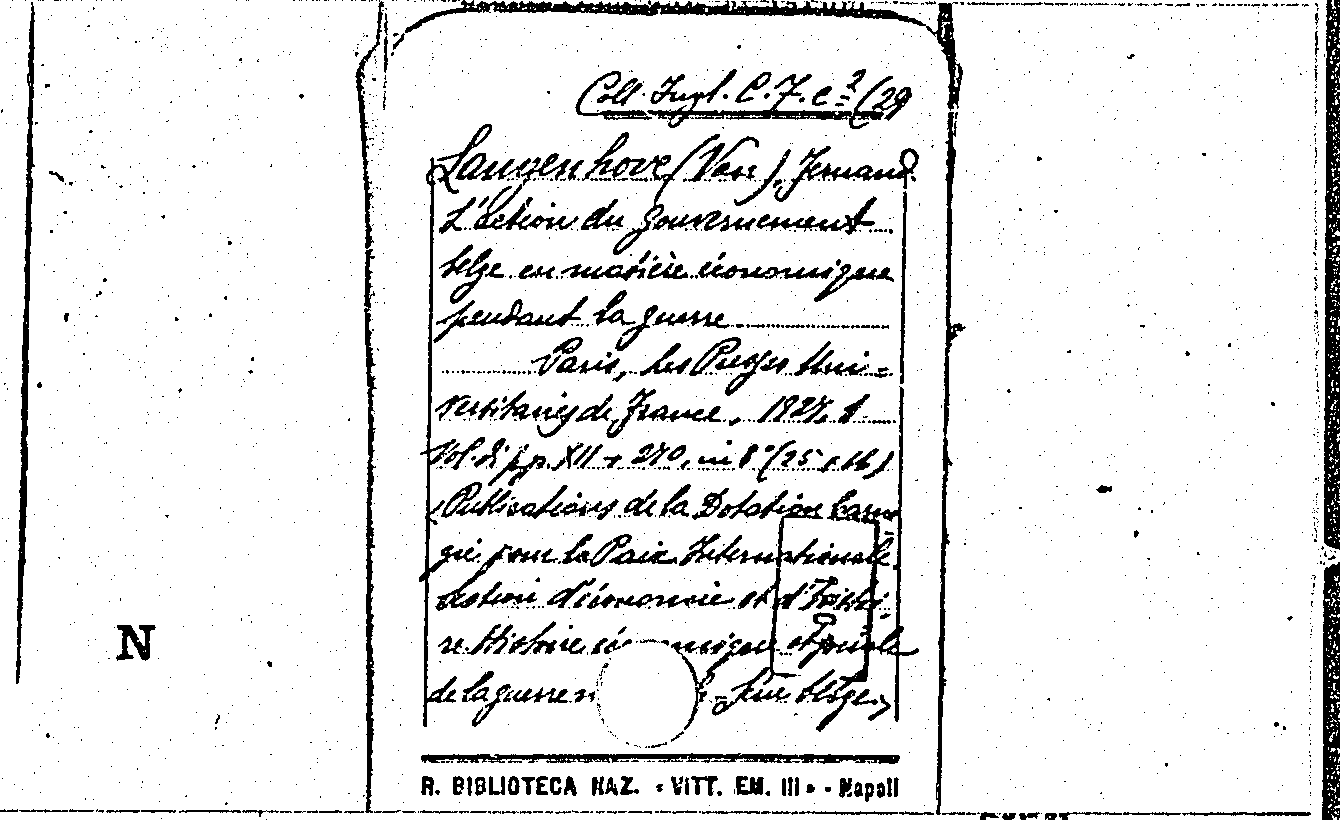 Coll. Ingl. C. 7. c² (29
Langenhove (Van), Fernand.
L'action du gouvernement
belge en matière économique
pendant la guerre
Paris, Les Presses Uni=
versitaires de France, 1927, 1
Vol. di pp. XII + 270, in 8° (25 x 16)
(Publications de la Dotation Carne
gie pour la Paix Internationale.
Section d'économie et d'histoi-
re Histoire économique et sociale
de la guerre Série belge.)
N
R. BIBLIOTECA NAZ. « VITT. EM. III » - Napoli